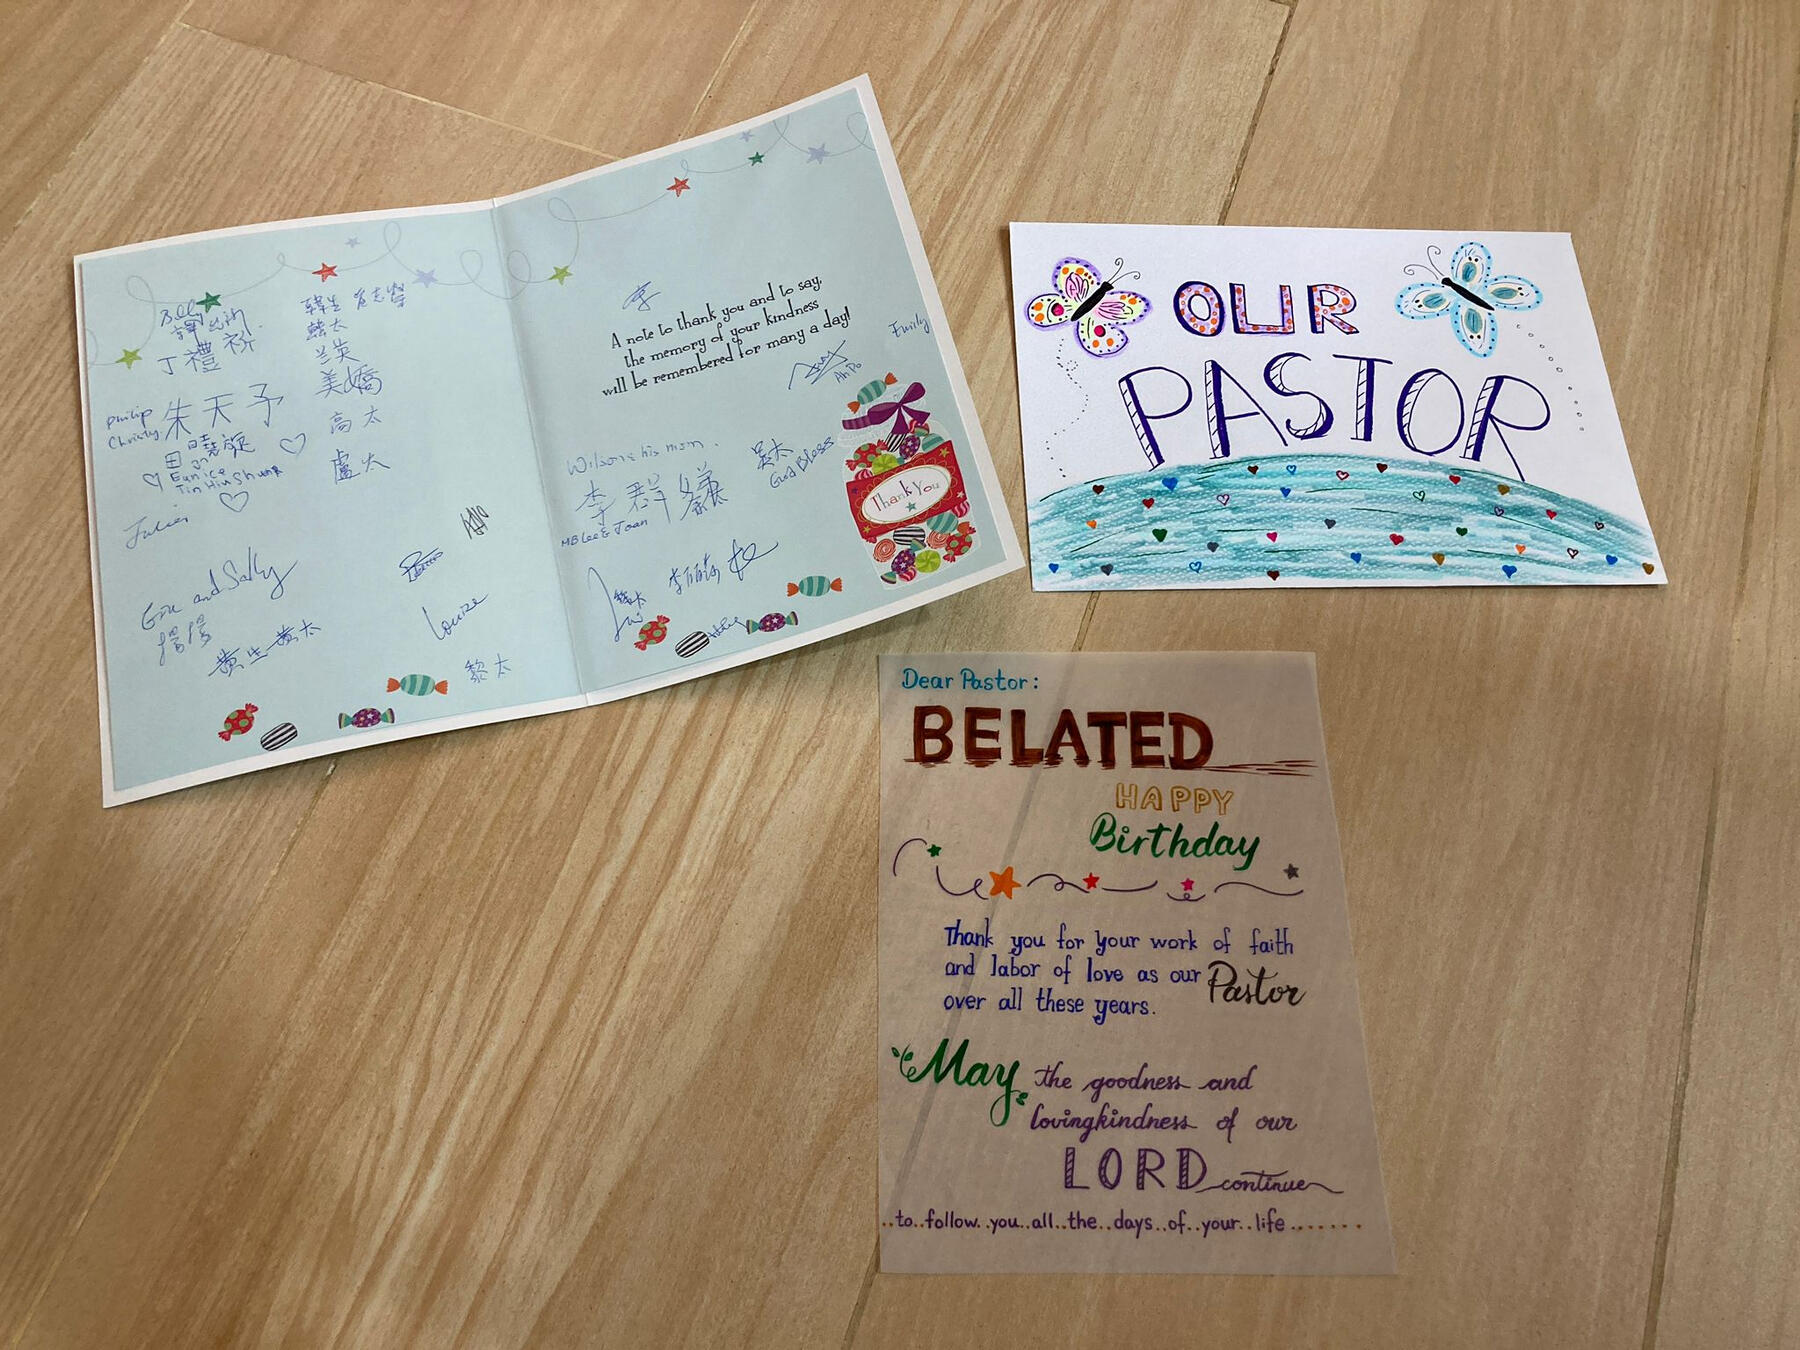 Billy
丁禮
philip
Christy
朱天予
Eunice
Tin Hiu Shuen
Julian
and Sally
黃生黃太
韓生
韓太
美嬌
高太
盧太
Louise
黎太
李
A note to thank you and to say,
the memory of your kindness
will be remembered for many a day!
Emily
Ah Po
Wilson & his mom.
李群
MB Lee & Joan
吳太
God Bless
Thank You
OUR
PASTOR
Dear Pastor:
BELATED
HAPPY
Birthday
Thank you for your work of faith
and labor of love as our Pastor
over all these years.
May the goodness and
lovingkindness of our
LORD continue
..to..follow..you..all..the..days..of..your..life.......